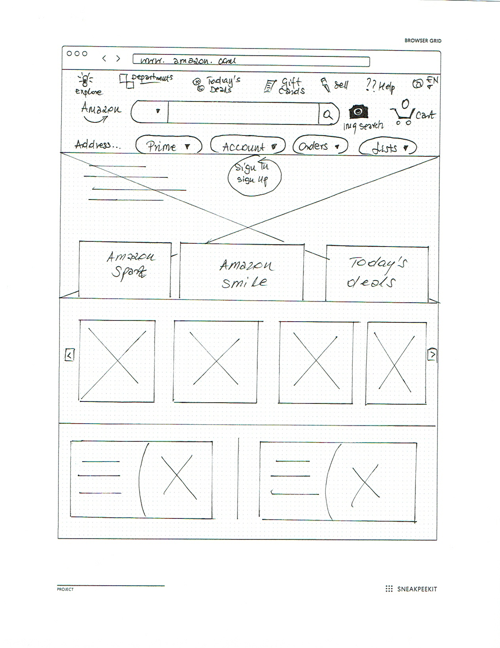 BROWSER GRID
www. amazon. com
Explore
Departments
Today's
Deals
Gift
Cards
Sell
?? Help
EN
Amazon
IMG search
0
Cart
Address...
Prime
Account
Orders
Lists
Sign In
Sign Up
Amazon
Spark
Amazon
Smile
Today's
deals
PROJECT
SNEAKPEEKIT